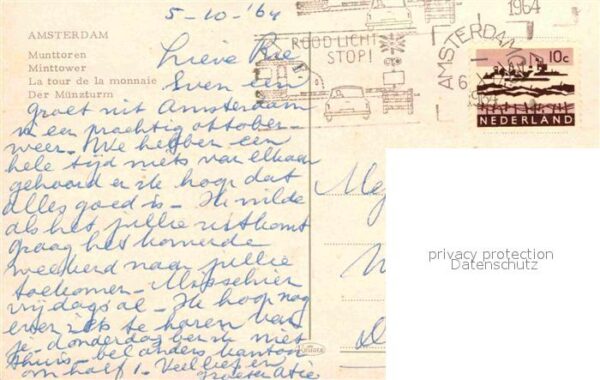 5-10-'64
AMSTERDAM
Munttoren
Minttower
La tour de la monnaie
Der Münzturm
Lieve
Even een
groet uit Amsterdam
in een prachtig oktober-
weer. We hebben een
hele tijd niets van elkaar
gehoord en ik hoop dat
alles goed is. Ik wilde
als het jullie uitkomt
graag het komende
weekend naar jullie
toekomen. Misschien
vrijdags al. Ik hoop nog
even iets te horen van
je. donderdag ben ik niet
thuis - bel anders kantoor
om half 1. Veel liefs en
groeten
ROOD LICHT
STOP!
1964
AMSTERDAM
6
1964
10c
NEDERLAND
privacy protection
Datenschutz